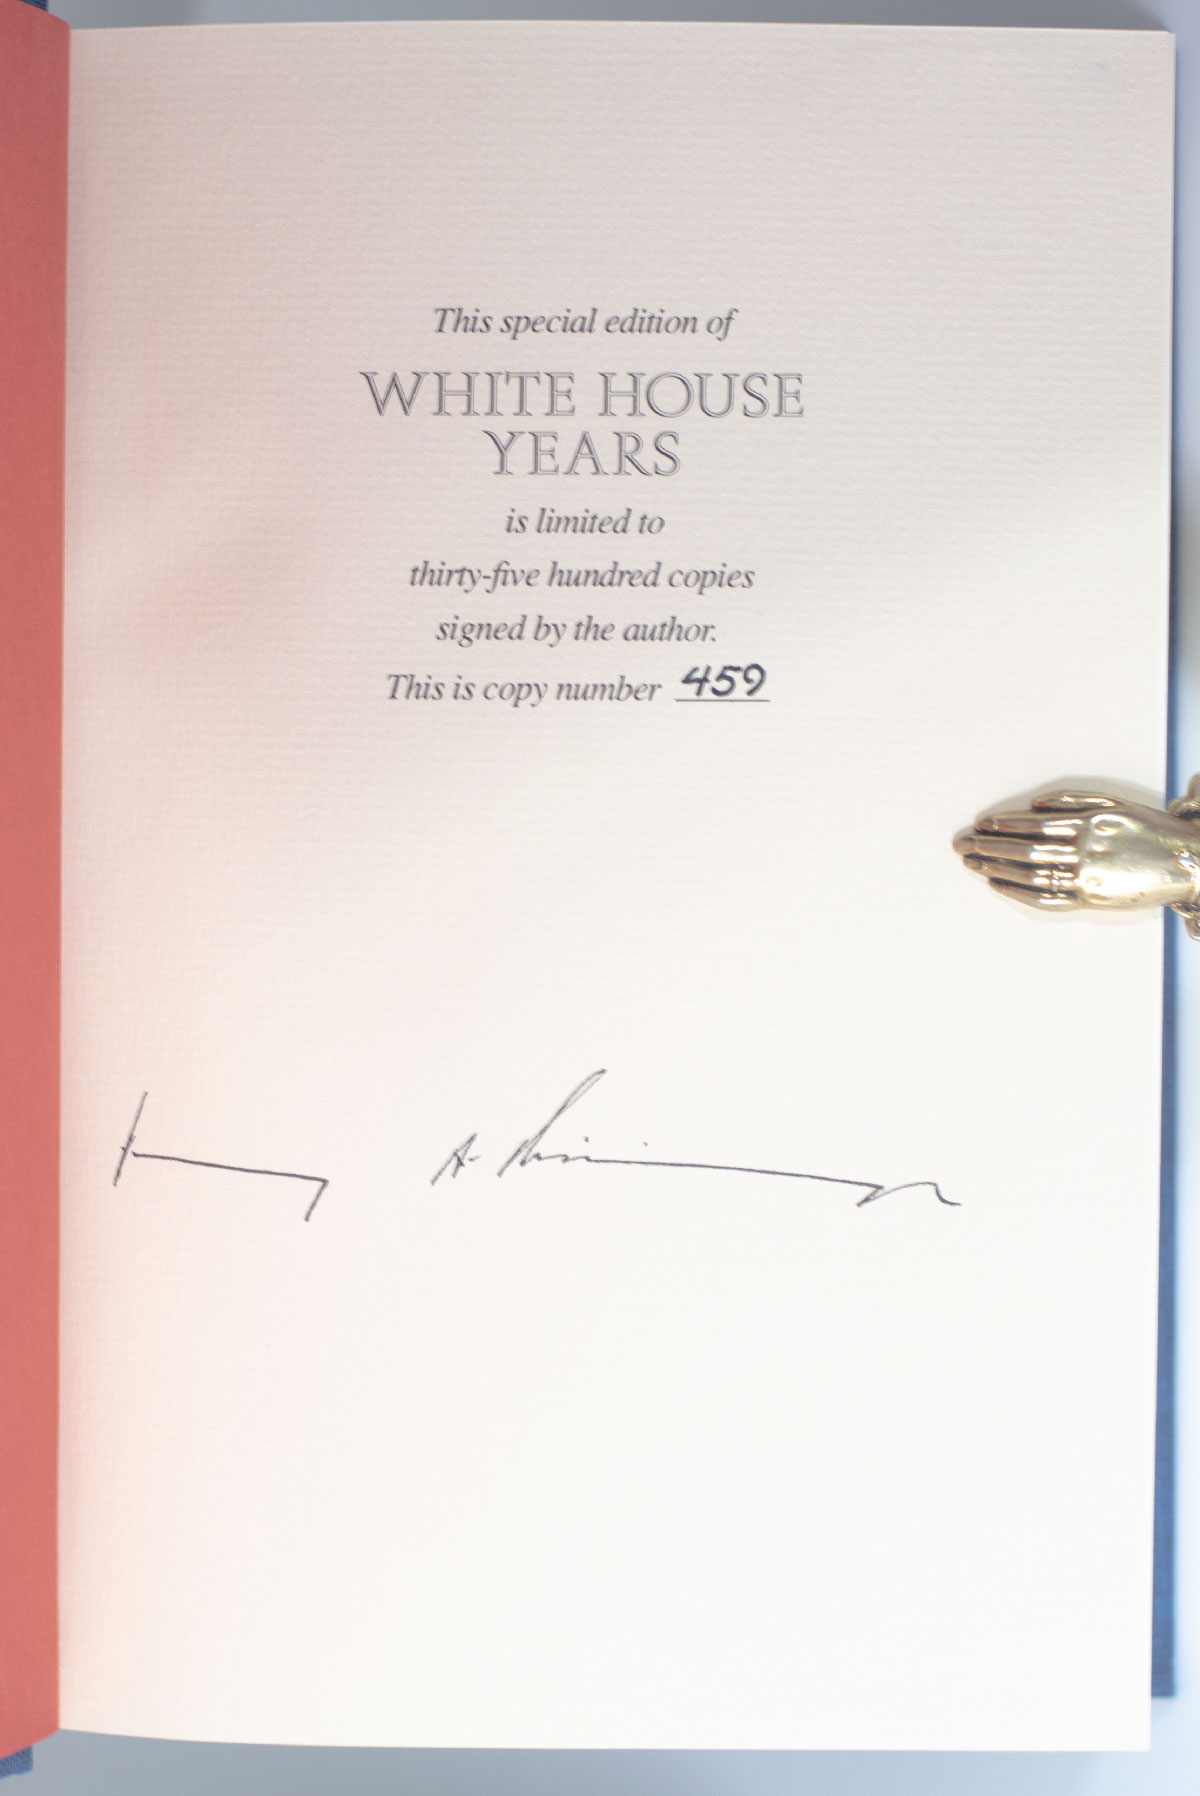 This special edition of
WHITE HOUSE
YEARS
is limited to
thirty-five hundred copies
signed by the author.
This is copy number 459
Henry A. Kissinger